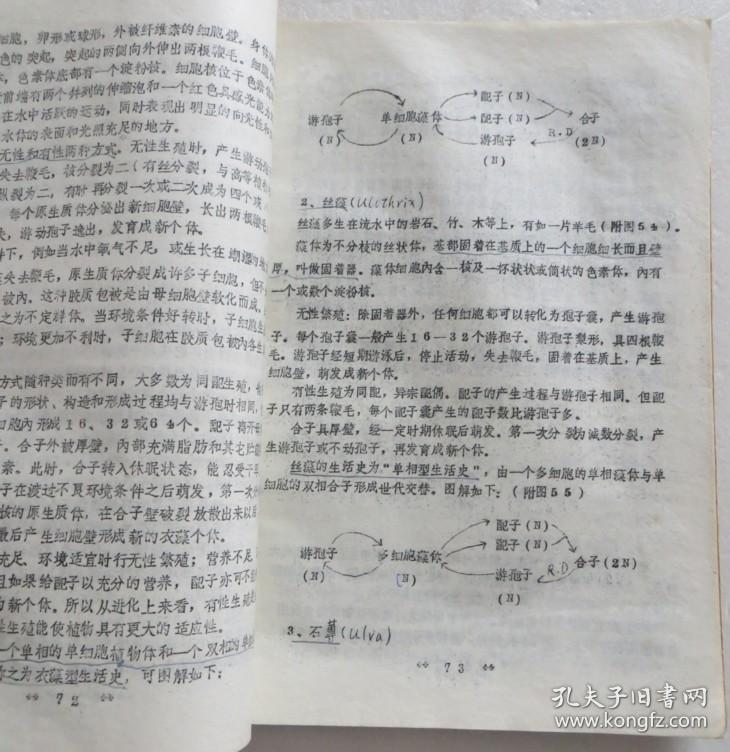 细胞，卵形或球形，外被纤维素的细胞壁。
色的突起，突起的两侧向外伸出两根鞭毛。细胞
色素体底部有一个淀粉核。细胞核位于色素体
前端有两个并列的伸缩泡和一个红色具感光能力
在水中活跃的运动，同时表现出明显的向光性和
水体的表面和光照充足的地方。
无性和有性两种方式。无性生殖时，产生游动孢子
失去鞭毛，核分裂为二（有丝分裂，与高等植物
纵裂为二，有时再分裂一次或二次成为四个或八
每个原生质体分泌出新细胞壁，长出两根鞭毛
游动孢子逸出，发育成新个体。
下，例如当水中氧气不足，或生长在潮湿的地
失去鞭毛，原生质体分裂成许多子细胞，但不
被内。这种胶质包被是由母细胞壁软化而成。
之为不定群体。当环境条件好转时，子细胞生
；环境更加不利时，子细胞在胶质包被内各生
方式随种类而有不同，大多数为同配生殖，
子的形状、构造和形成过程均与游孢时相同，
细胞内形成16、32或64个。配子离开母
合子外被厚壁，内部充满脂肪和其它贮藏
素。此时，合子转入休眠状态，能忍受干旱
子在渡过不良环境条件之后萌发，第一次分
核的原生质体，在合子壁破裂放散出来以后
最后产生细胞壁形成新的衣藻个体。
充足、环境适宜时行无性繁殖；营养不足
且如果给配子以充分的营养，配子亦可不结
为新个体。所以从进化上来看，有性生殖是
性生殖能使植物具有更大的适应性。
一个单相的单细胞植物体和一个双相的单细
称之为衣藻型生活史，可图解如下：
72
配子(N)
游孢子 单细胞藻体 配子(N) 合子
(N) (N) 游孢子 R.D (2N)
(N)
2、丝藻(Ulothrix)
丝藻多生在流水中的岩石、竹、木等上，有如一片羊毛（附图54）。
藻体为不分枝的丝状体，基部固着在基质上的一个细胞细长而且壁
厚，叫做固着器。藻体细胞内含一核及一环状状或筒状的色素体，内有
一个或数个淀粉核。
无性繁殖：除固着器外，任何细胞都可以转化为孢子囊，产生游孢
子。每个孢子囊一般产生16—32个游孢子。游孢子梨形，具四根鞭
毛。游孢子经短期游泳后，停止活动，失去鞭毛，固着在基质上，产生
细胞壁，萌发成新个体。
有性生殖为同配，异宗配偶。配子的产生过程与游孢子相同。但配
子只有两条鞭毛，每个配子囊产生的配子数比游孢子多。
合子具厚壁，经一定时期休眠后萌发。第一次分裂为减数分裂，产
生游孢子或不动孢子，再发育成新个体。
丝藻的生活史为“单相型生活史”，由一个多细胞的单相藻体与单
细胞的双相合子形成世代交替。图解如下：（附图55）
配子(N)
游孢子 多细胞藻体 配子(N) 合子(2N)
(N) (N) 游孢子 R.D
(N)
3、石莼(Ulva)
73
孔夫子旧书网
www.kongfz.com